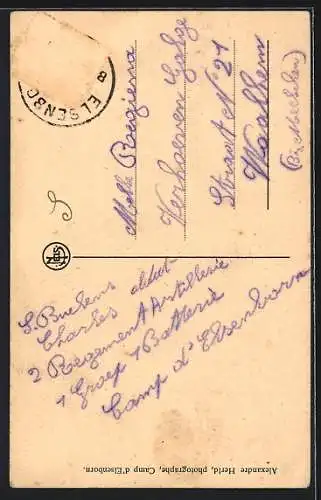 ELSENBO
8
Melle Regiena
Verhaeven Galge
Straat No 21
Waelhem
(Bij Mechelen)
S. Buekens
Charles soldat
2 Regement Artillerie
1 Groep 1 Batterie
Camp d'Elsenborn
Alexandre Herld, photographe, Camp d'Elsenborn.